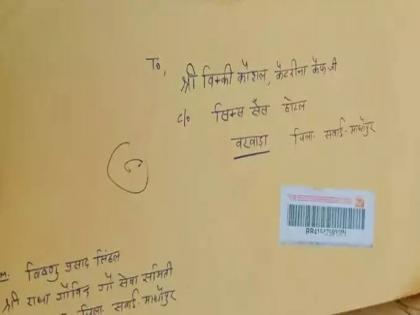 To,
श्री विक्की कौशल, केटरीना कैफ जी
c/o सिक्स सेंस होटल
बरवाड़ा जिला- सवाई-माधोपुर
m: विष्णु प्रसाद सिंहल
श्री राधा गोविन्द गौ सेवा समिती
जिला- सवाई-माधोपुर